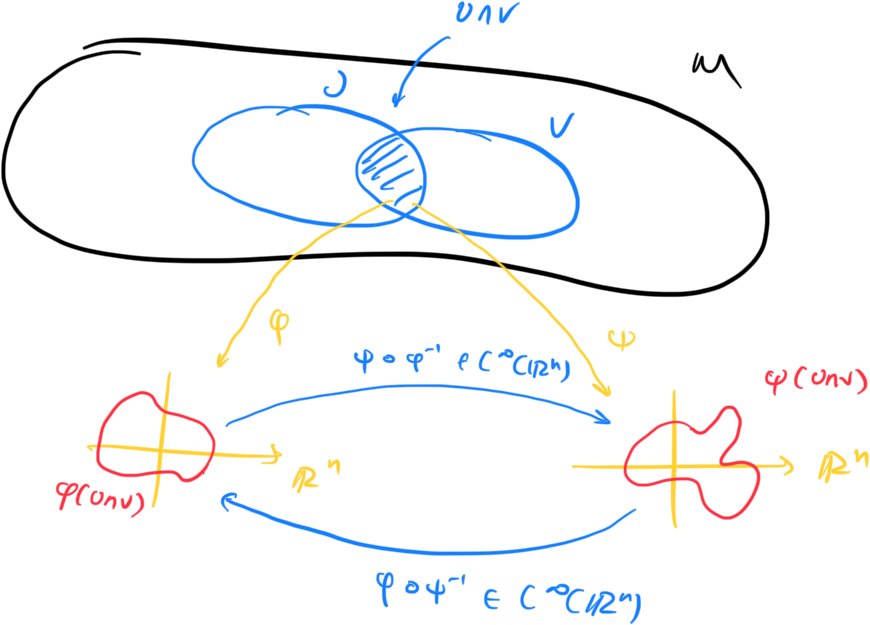 U∩V
M
U
V
φ
ψ
ψ ∘ φ⁻¹ ∈ C^∞(ℝⁿ)
φ(U∩V)
ℝⁿ
φ(U∩V)
ℝⁿ
φ ∘ ψ⁻¹ ∈ C^∞(ℝⁿ)